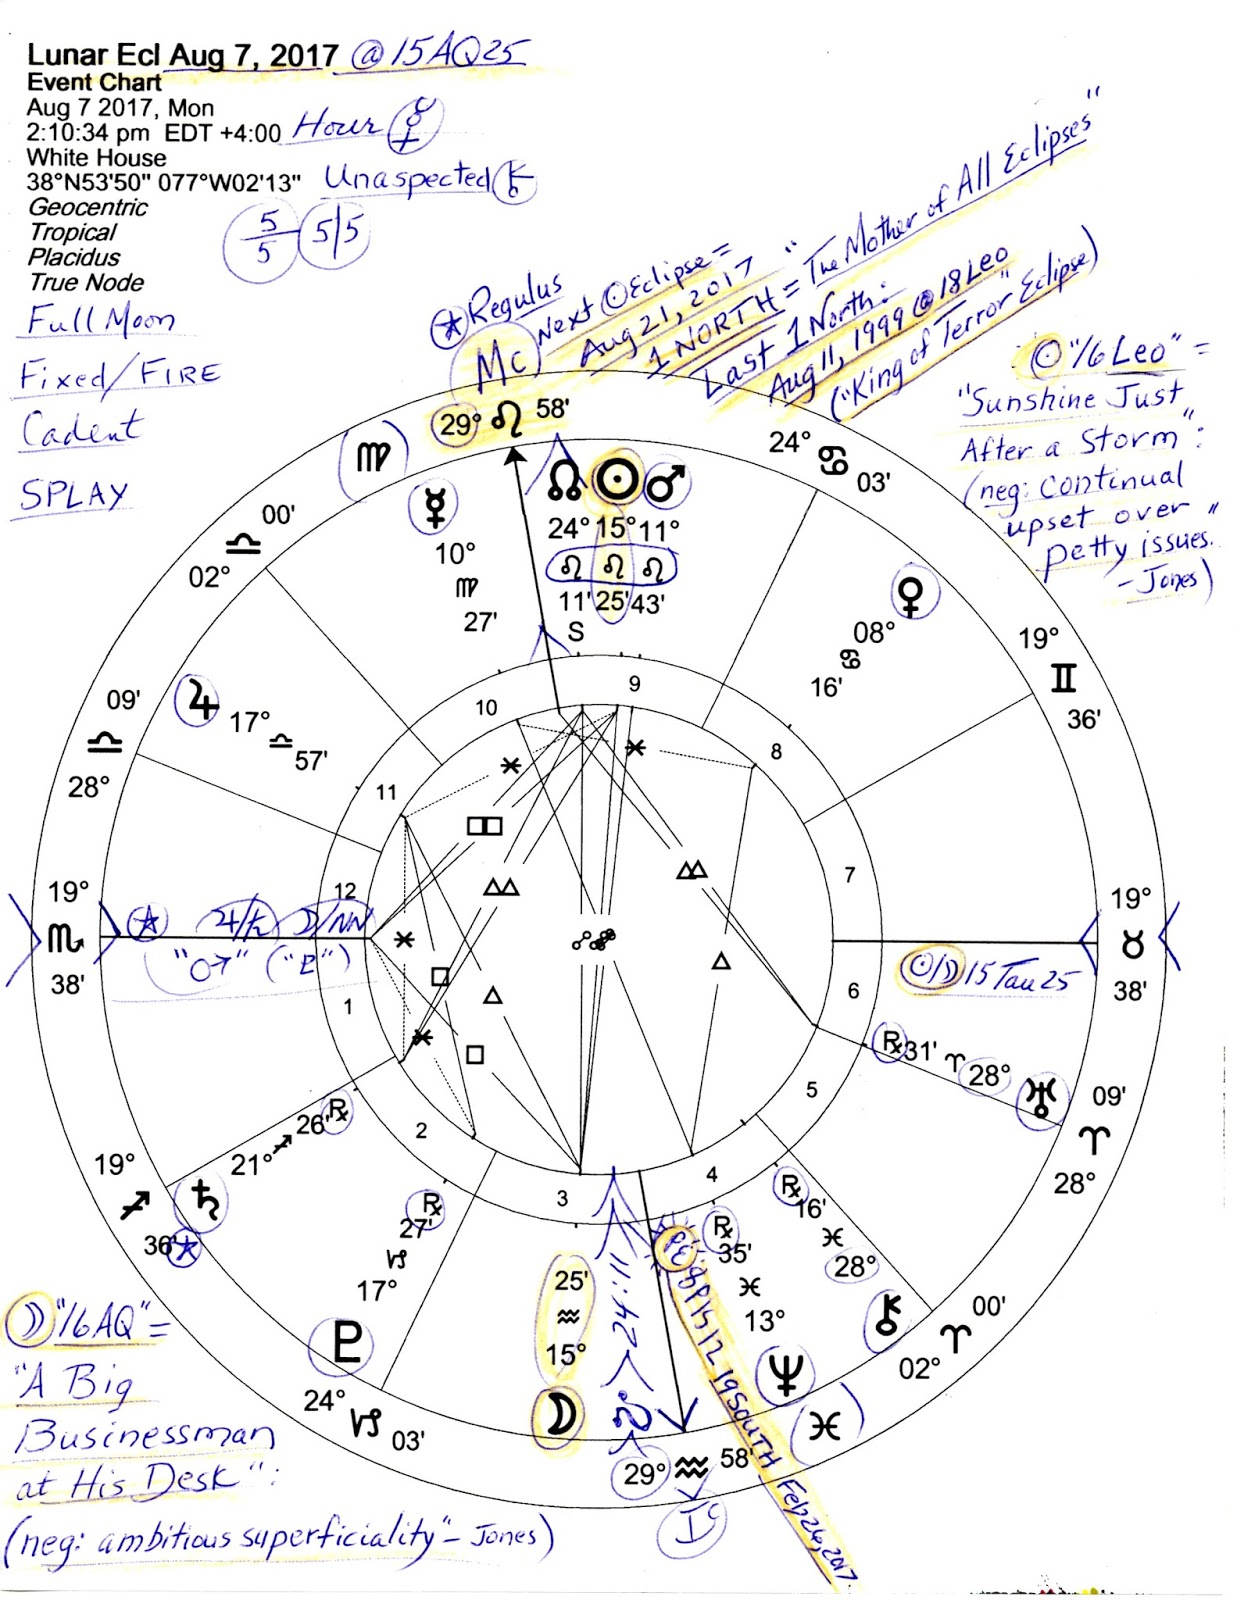 Lunar Ecl Aug 7, 2017 @ 15AQ25
Event Chart
Aug 7 2017, Mon
2:10:34 pm EDT +4:00 Hour ☿
White House
38°N53'50" 077°W02'13" Unaspected ⚷
Geocentric
Tropical
Placidus
True Node
5/5 5|5
Full Moon
Fixed/FIRE
Cadent
SPLAY
☆Regulus
Mc
Next ☉Eclipse =
Aug 21, 2017
1 NORTH = "The Mother of All Eclipses"
Last 1 North:
Aug 11, 1999 @ 18 Leo
("King of Terror" Eclipse)
☉ "16 Leo" =
"Sunshine Just
After a Storm":
(neg: continual
upset over
petty issues."
- Jones)
29° ♌ 58'
♍
24° ♋ 03'
☊ ☉ ♂
24° 15° 11°
♌ ♌ ♌
11' 25' 43'
S
☿
10°
♍
27'
00'
♎
02°
♀
08°
♋
16'
19°
♊
36'
♃ 17° ♎ 57'
09'
♎
28°
10
9
8
11
7
12
6
1
5
2
3
4
19°
♏
38'
☆ ♃/♄ ☽/NN
"OT" ("E")
19°
♉
38'
☉/☽ 15 Tau 25
℞ 31' ♈ 28° ♅
09'
♈
28°
19°
♐
36' ☆
♄ 21° ♐ 26' ℞
℞
27'
♑
17°
♇
24° ♑ 03'
25'
♒
15°
☽
☋ 24:11
29° ♒ 58'
Ic
PE 8PIS12 19 SOUTH Feb 26, 2017
℞
35'
♓
13°
♆
♓
℞
16'
♓
28°
⚷
00'
♈
02°
☽ "16 AQ" =
"A Big
Businessman
at His Desk":
(neg: ambitious superficiality" - Jones)